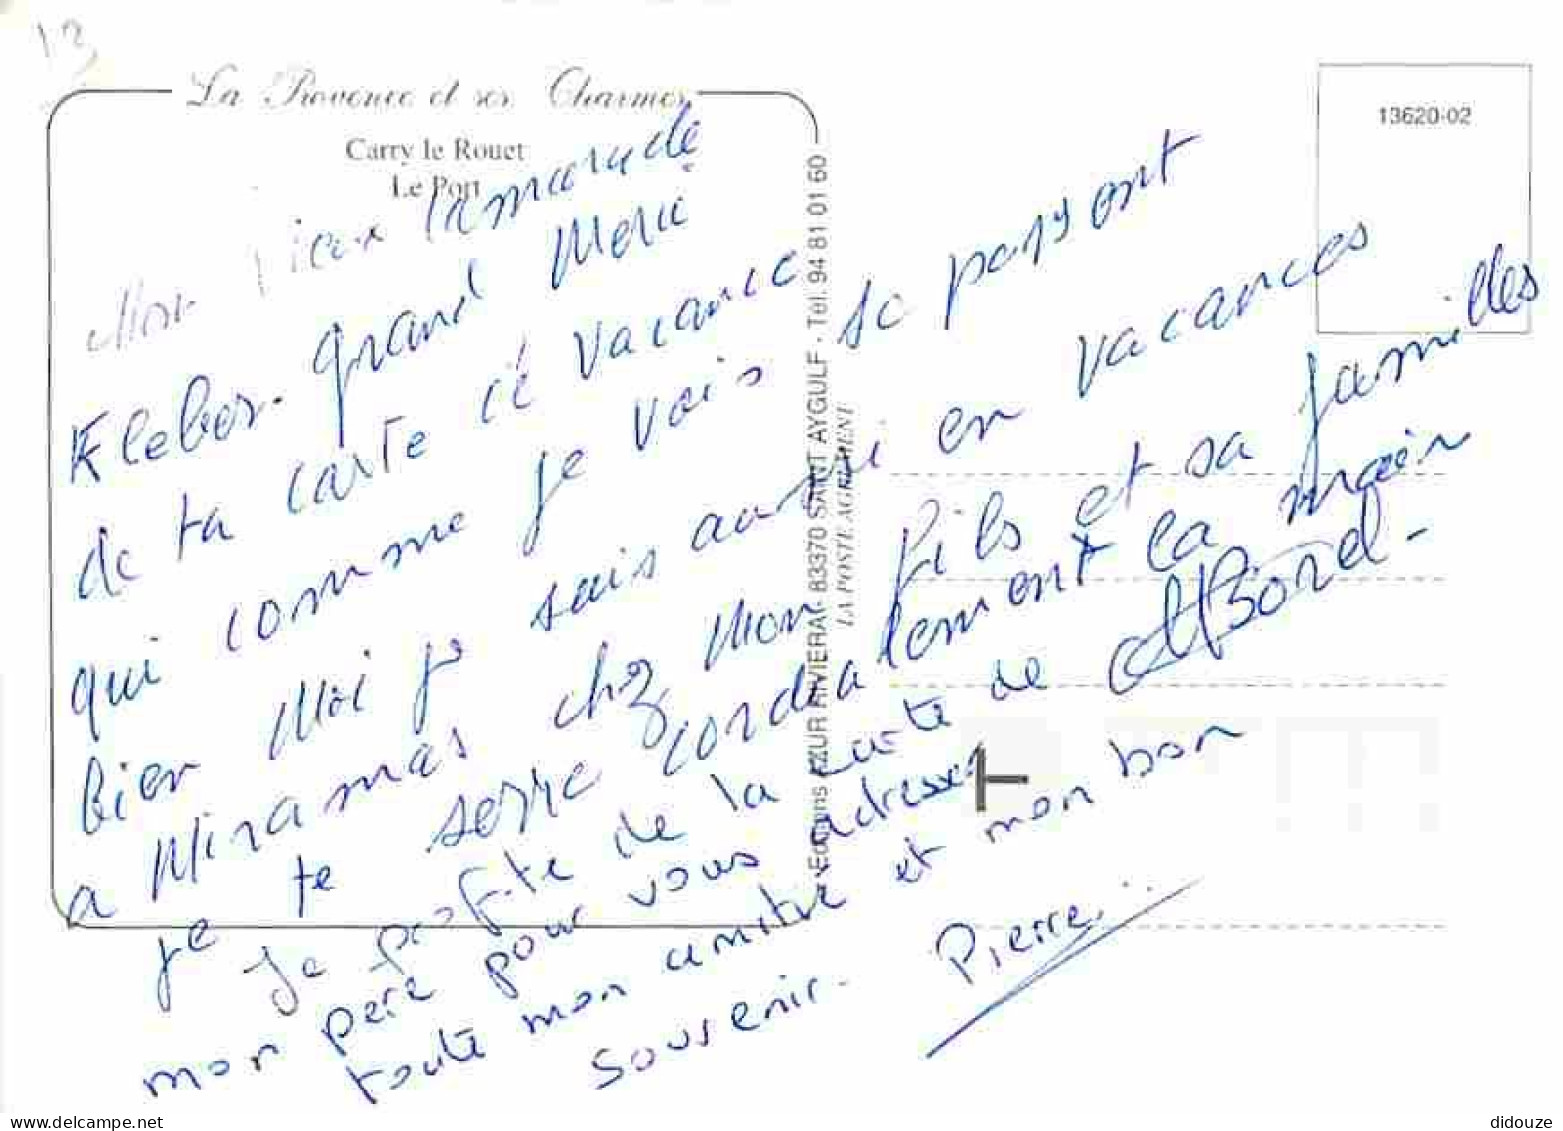 13
La Provence et ses Charmes
Carry le Rouet
Le Port
13620-02
Mon vieux Camarade
Kleber. grand Merci
de ta carte cé vacance
qui comme je vois se passent
bien Moi je suis aussi en vacances
a Miramas chez Mon fils et sa familles
je te serre cordialement la main
Bord-
Je profite de la carte de
mon pere pour vous adresser
toute mon amitié et mon bon
souvenir. Pierre.
Editions AZUR RIVIERA - 83370 SAINT AYGULF - Tél. 94 81 01 60
LA POSTE AGREMENT
delcampe.net
didouze